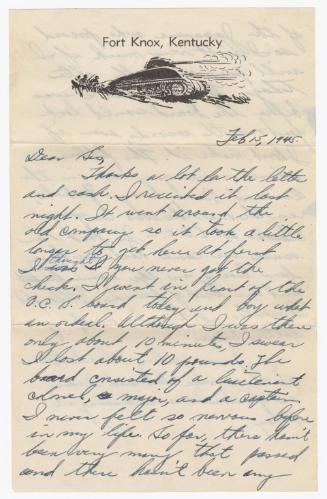 Fort Knox, Kentucky
Feb 15, 1945.
Dear Sis,
Thanks a lot for the letter
and cash. I received it last
night. It went around the
old company so it took a little
longer to get here. At first
I thought you never got the
check. I went in front of the
O.C.S. board today and boy what
an ordeal. Although I was there
only about 10 minutes, I swear
I lost about 10 pounds. The
board consisted of a lieutenant
colonel, a major, and a captain.
I never felt so nervous before
in my life. So far, there hasn't
been very many that passed
and there hasn't been any